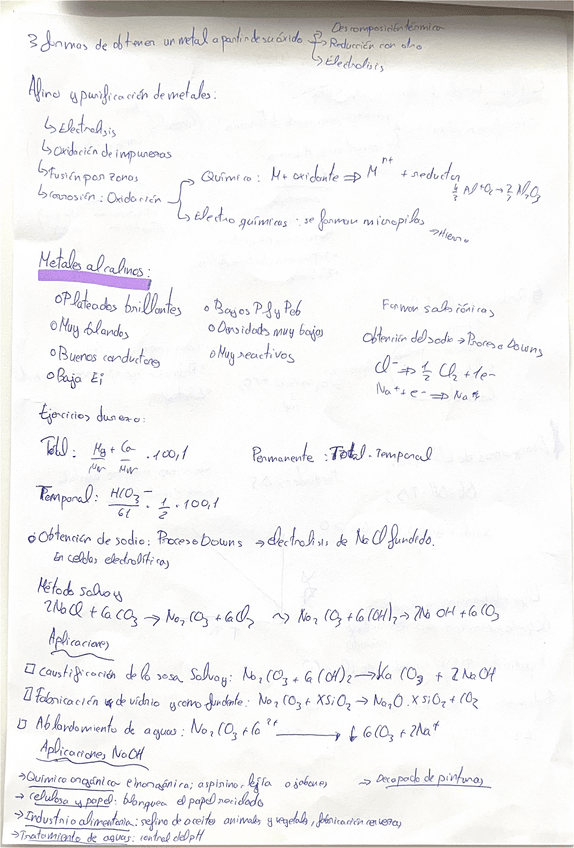 3 formas de obtener un metal a partir de su óxido
Descomposición térmica
Reducción con otro
↳ Electrolisis
Afino y purificación de metales:
↳ Electrolisis
↳ Oxidación de impurezas
↳ Fusión por zonas
↳ Corrosión: Oxidación
Químico: M + oxidante ⇒ M^n+ + reductor
4/3 Al + O₂ → 2/3 Al₂O₃
↳ Electroquímicos: se forman micropilas → Hierro
Metales alcalinos:
o Plateados brillantes
o Muy blandos
o Buenos conductores
o Baja Ei
o Bajos Pf y Peb
o Densidades muy bajas
o Muy reactivos
Forman sales iónicas
Obtención del sodio → Proceso Downs
Cl⁻ ⇒ 1/2 Cl₂ + 1e⁻
Na⁺ + e⁻ ⇒ Na
Ejercicios dureza:
Total: Mg/Mr + Ca/Mr · 100,1
Permanente: Total - Temporal
Temporal: HCO₃⁻/61 · 1/2 · 100,1
o Obtención de sodio: Proceso Downs → electrolisis de NaCl fundido.
En celdas electrolíticas
Método solvay
2NaCl + CaCO₃ → Na₂CO₃ + CaCl₂ ⤳ Na₂CO₃ + Ca(OH)₂ → 2NaOH + CaCO₃
Aplicaciones
□ Caustificación de la sosa Solvay: Na₂CO₃ + Ca(OH)₂ → CaCO₃ + 2NaOH
□ Fabricación de vidrio y como fundente: Na₂CO₃ + XSiO₂ → Na₂O · XSiO₂ + CO₂
□ Ablandamiento de aguas: Na₂CO₃ + Ca²⁺ → ↓CaCO₃ + 2Na⁺
Aplicaciones NaOH
→ Química orgánica e inorgánica; aspirina, lejía o jabones
→ Decapado de pinturas
→ Celulosa y papel: blanquea el papel reciclado
→ Industria alimentaria: refino de aceites animales y vegetales, fabricación
→ Tratamiento de aguas: control del pH